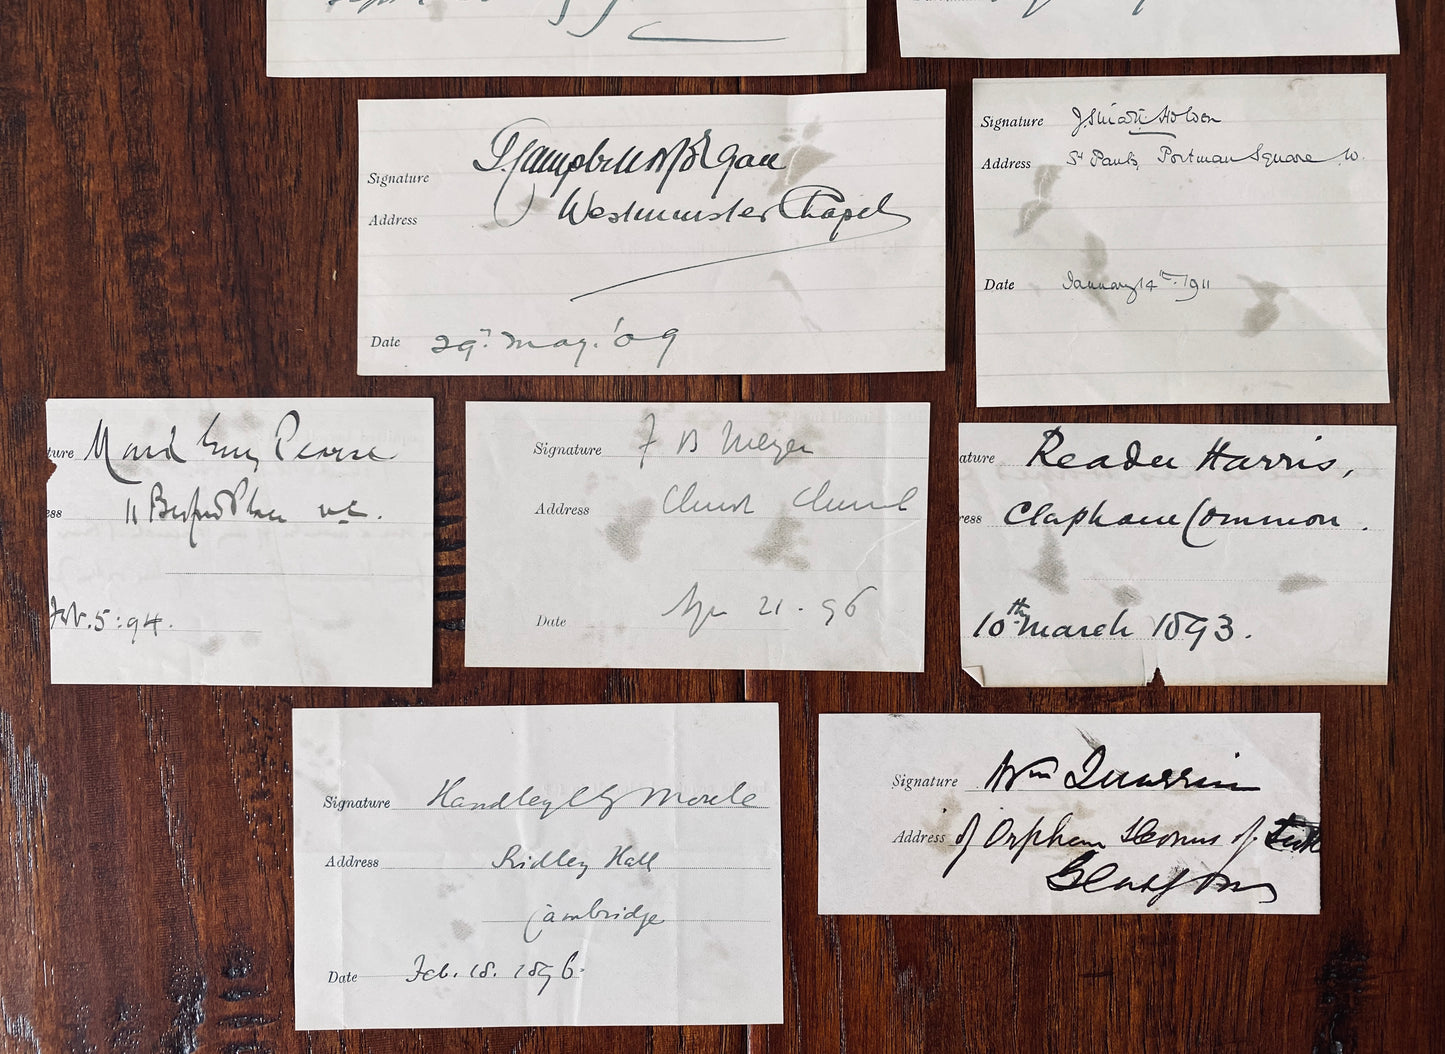 Signature G. Campbell Morgan
Address Westminster Chapel
Date 29. May. '09
Signature J. Stuart Holden
Address St Pauls, Portman Square. W.
Date January 14th. 1911
ture Pearse
ess 11 Bedford Place W.C.
Feb. 5: 94.
Signature F B Meyer
Address Christ Church
Date Apr 21. 96
ature Reader Harris,
ress Clapham Common.
10th March 1893.
Signature Handley C G Moule
Address Ridley Hall
Cambridge
Date Feb. 18. 1896.
Signature Wm Quarrier
Address of Orphan Homes of
Glasgow